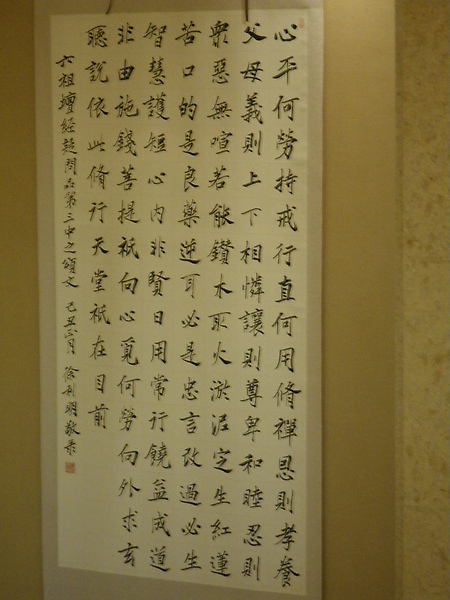 心平何勞持戒行直何用脩禪恩則孝養
父母義則上下相憐讓則尊卑和睦忍則
衆惡無喧若能鑽木取火淤泥定生紅蓮
苦口的是良藥逆耳必是忠言改過必生
智慧護短心內非賢日用常行饒益成道
非由施錢菩提祇向心覓何勞向外求玄
聽說依此脩行天堂祇在目前
六祖壇經疑問品第三中之頌文 己丑三月 徐利明敬录